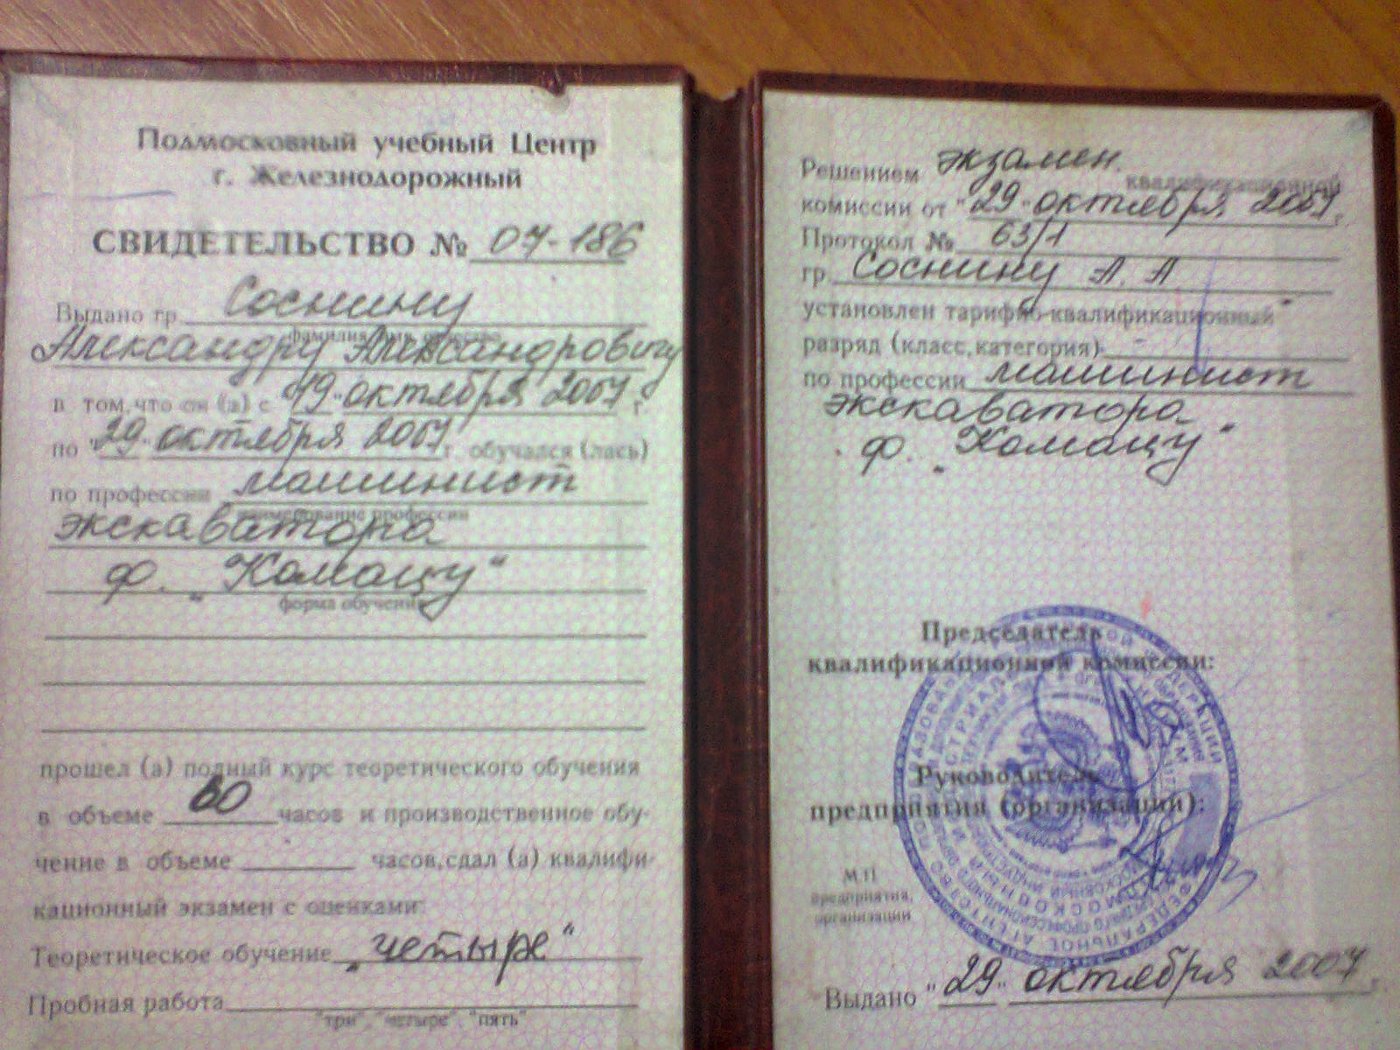 Подмосковный учебный Центр
г. Железнодорожный
СВИДЕТЕЛЬСТВО № 07-186
Выдано гр. Соснину
фамилия, имя, отчество
Александру Александровичу
в том,что он (а) с "19" октября 2007 г.
по "29" октября 2007 г. обучался (лась)
по профессии машинист
наименование профессии
экскаватора
ф. "Комацу"
форма обучения
прошел (а) полный курс теоретического обучения
в объеме 60 часов и производственное обу-
чение в объеме часов,сдал (а) квалифи-
кационный экзамен с оценками:
Теоретическое обучение "четыре"
Пробная работа
"три", "четыре", "пять"
Решением экзамен. квалификационной
комиссии от "29" октября 2007 г.
Протокол № 63/1
гр. Соснину А. А.
установлен тарифно-квалификационный
разряд (класс,категория) -
по профессии машинист
экскаватора
ф. "Комацу"
Председатель
квалификационной комиссии:
Руководитель
предприятия (организации):
М.П
предприятия,
организации
Выдано "29" октября 2007 г.